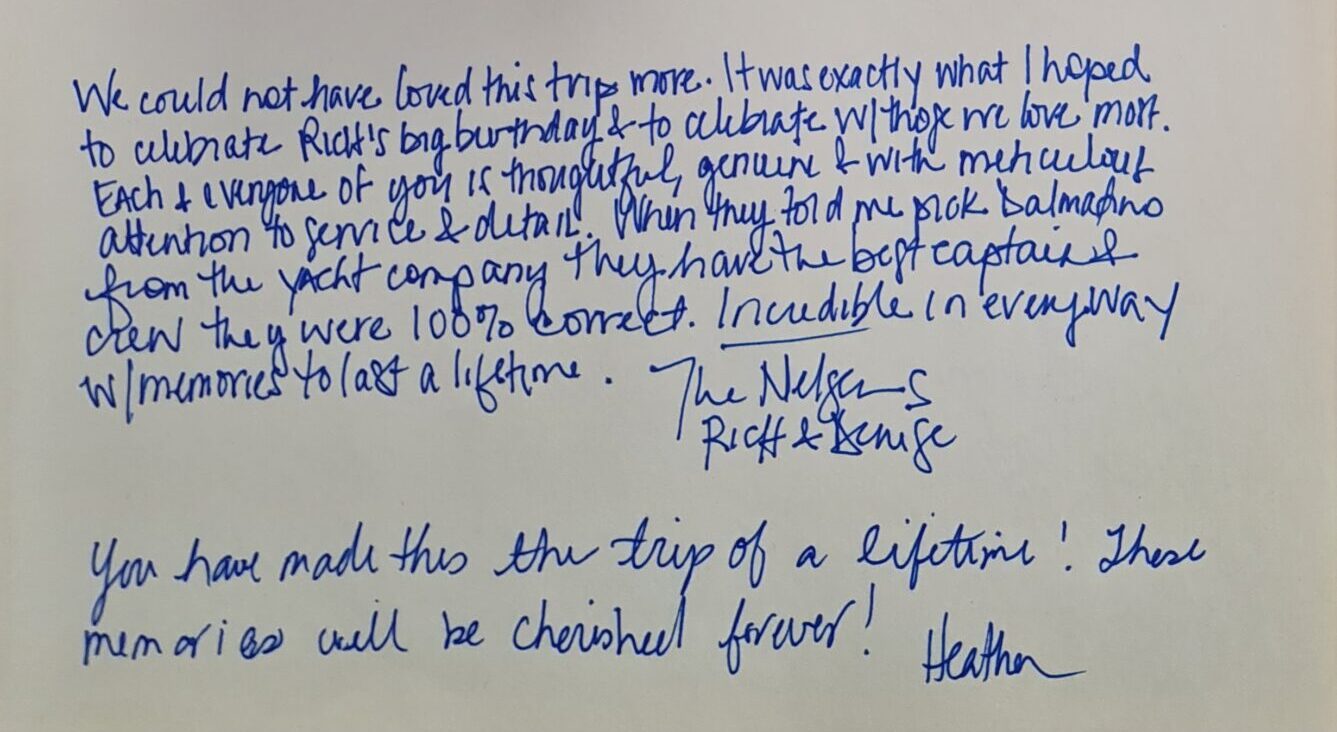 We could not have loved this trip more. It was exactly what I hoped
to celebrate Rich's big birthday & to celebrate w/those we love most.
Each & everyone of you is thoughtful, genuine & with meticulous
attention to service & detail. When they told me pick Dalmatino
from the yacht company they have the best captain &
crew they were 100% correct. Incredible in everyway
w/memories to last a lifetime. The Nelsons
Rich & Denise
You have made this the trip of a lifetime! These
memories will be cherished forever! Heather